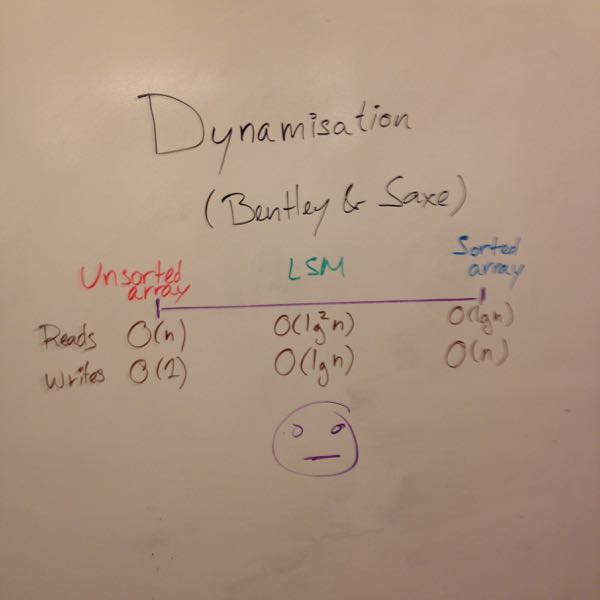 Dynamisation
(Bentley & Saxe)
Unsorted array LSM Sorted array
Reads O(n) O(lg²n) O(lgn)
Writes O(1) O(lgn) O(n)